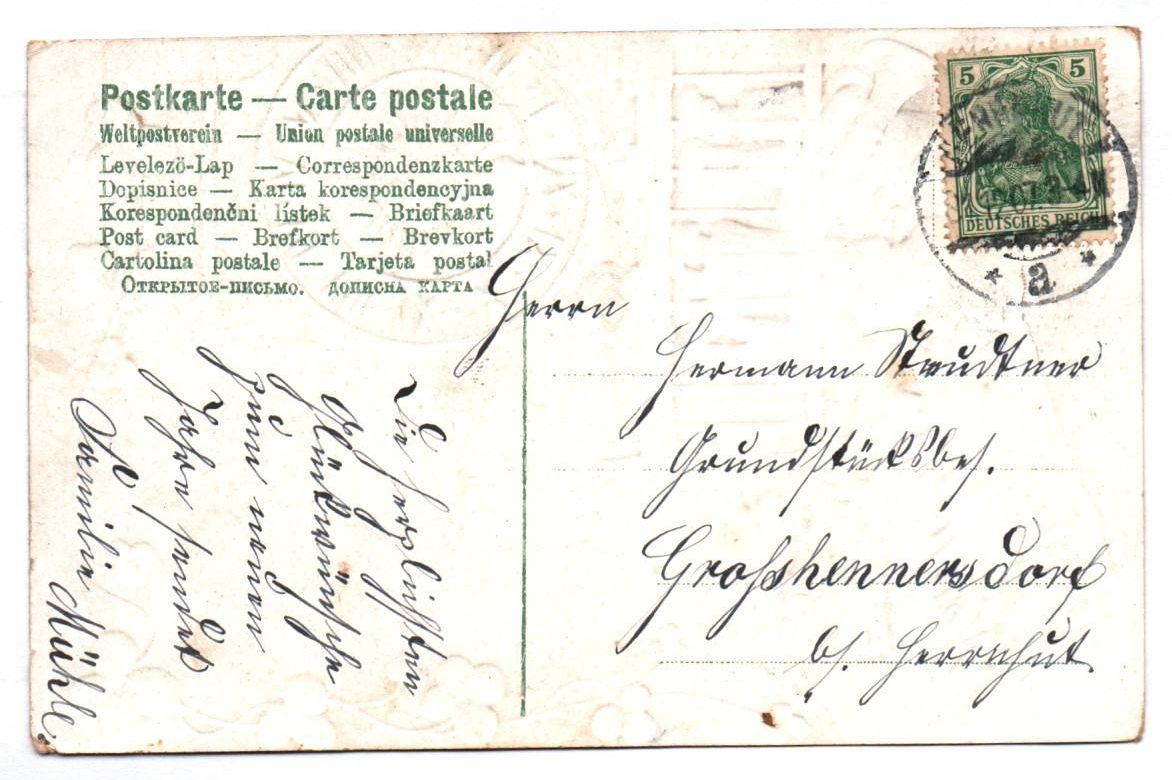 Postkarte — Carte postale
Weltpostverein — Union postale universelle
Levelező-Lap — Correspondenzkarte
Dopisnice — Karta korespondencyjna
Korespondenčni lístek — Briefkaart
Post card — Brefkort — Brevkort
Cartolina postale — Tarjeta postal
Открытое-письмо. дописна карта
5 5
DEUTSCHES REICH
* a *
Herrn
Hermann Strudtner
Grundstücksbes.
Großhennersdorf
b/. Herrnhut.
Die herzlichsten
Glückwünsche
zum neuen
Jahre sendet
Familie Mühle.